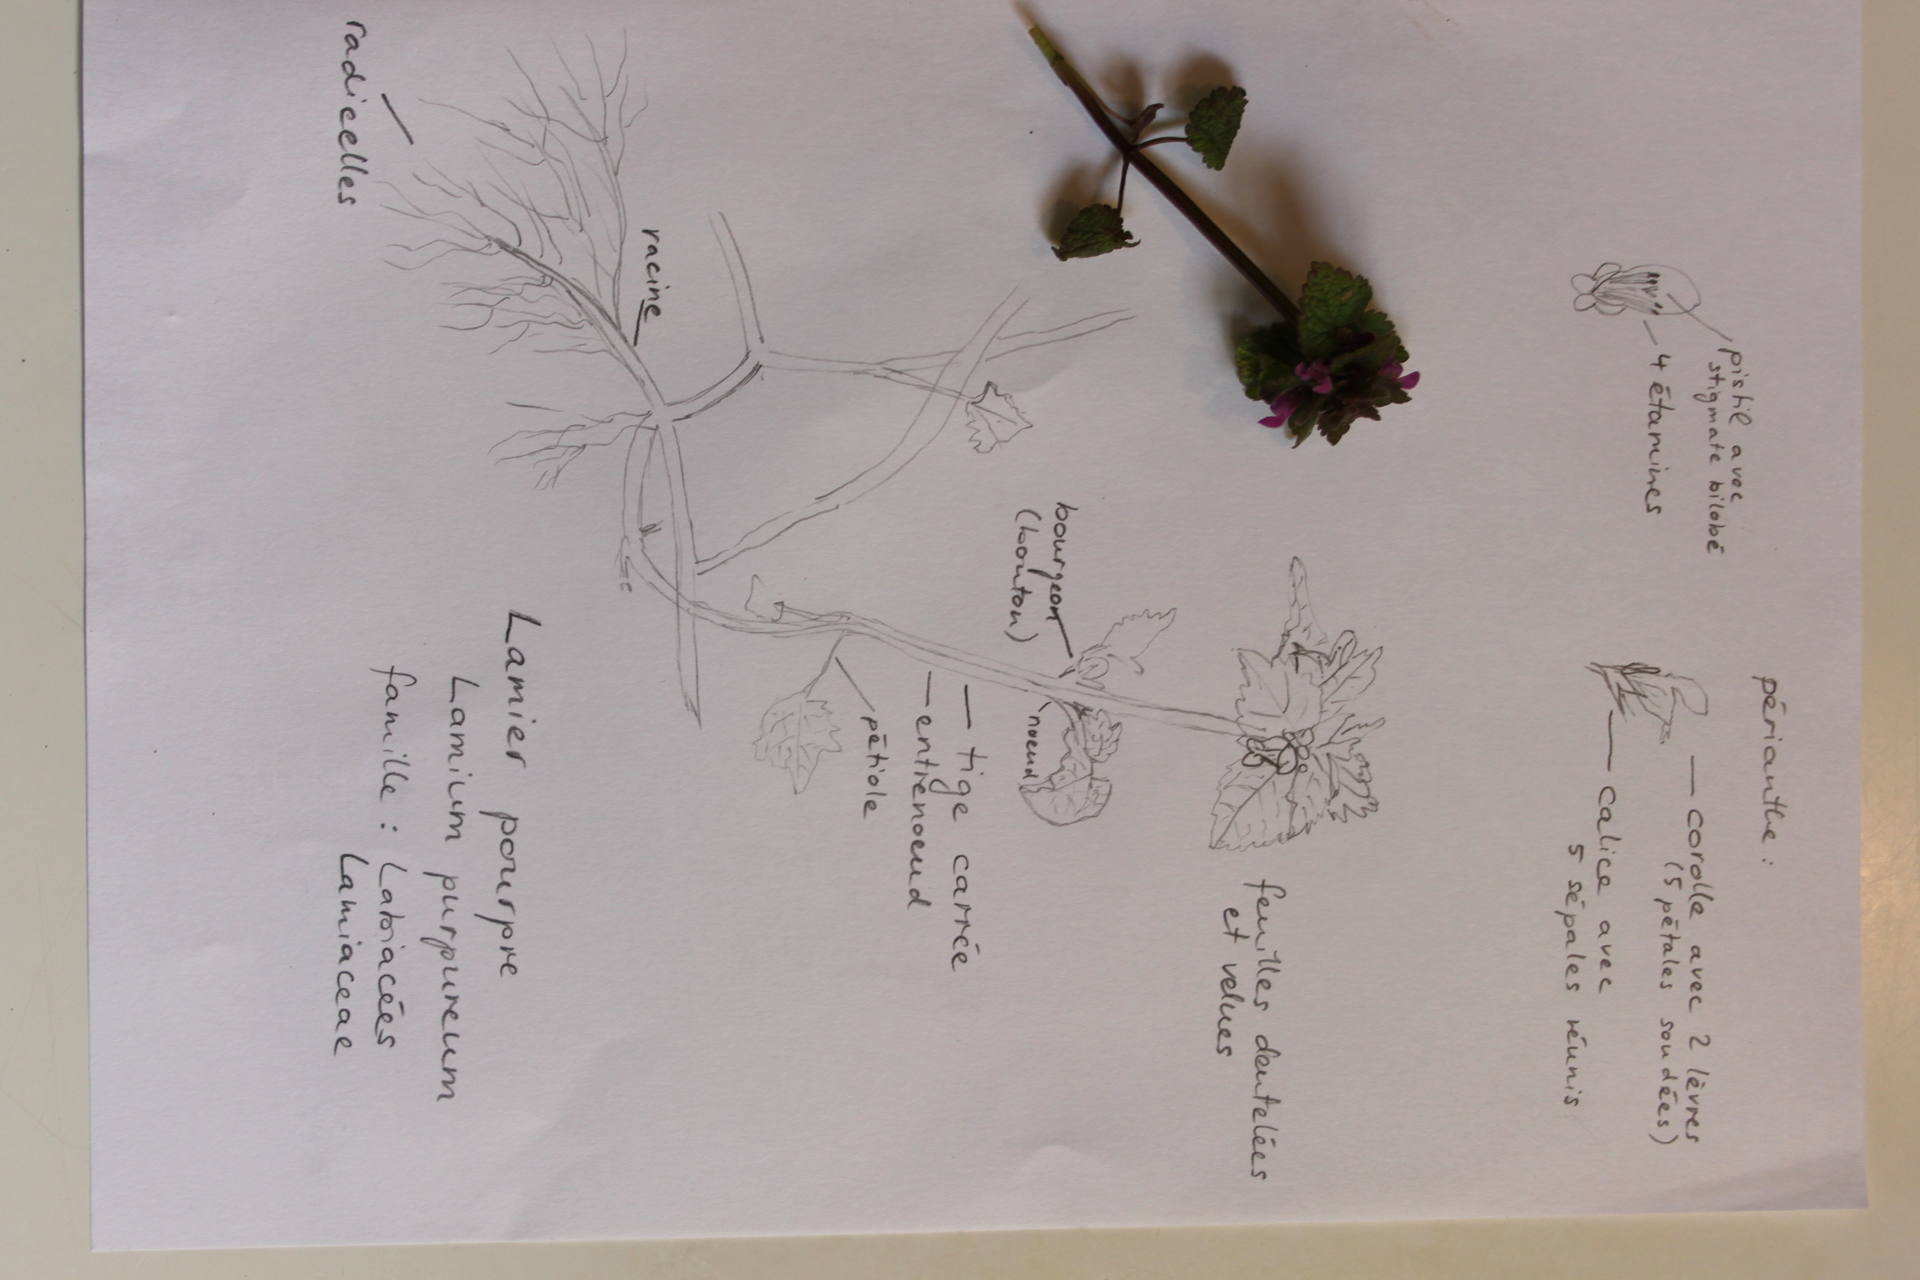 pistil avec
stigmate bilobé
4 étamines
périanthe :
corolle avec 2 lèvres
(5 pétales soudées)
calice avec
5 sépales réunis
feuilles dentelées
et velues
bourgeon
(bouton)
noeud
tige carrée
entrenoeud
pétiole
racine
radicelles
Lamier pourpre
Lamium purpureum
famille : Labiacées
Lamiaceae